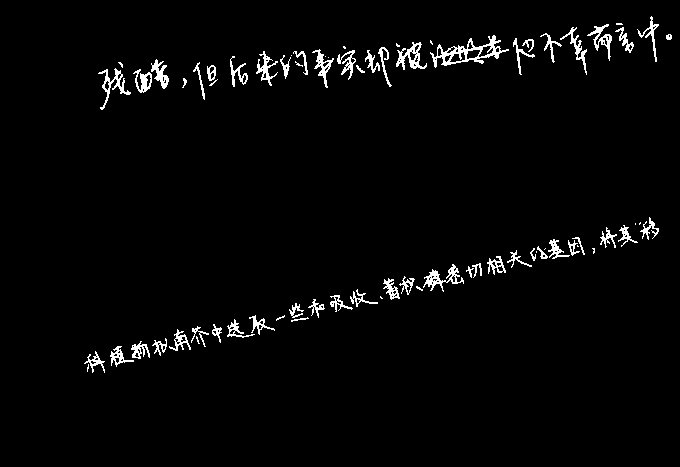 残酷，但后来的事实却被他不幸而言中。
科植物拟南芥中选取一些和吸收、蓄积磷密切相关的基因，将其移